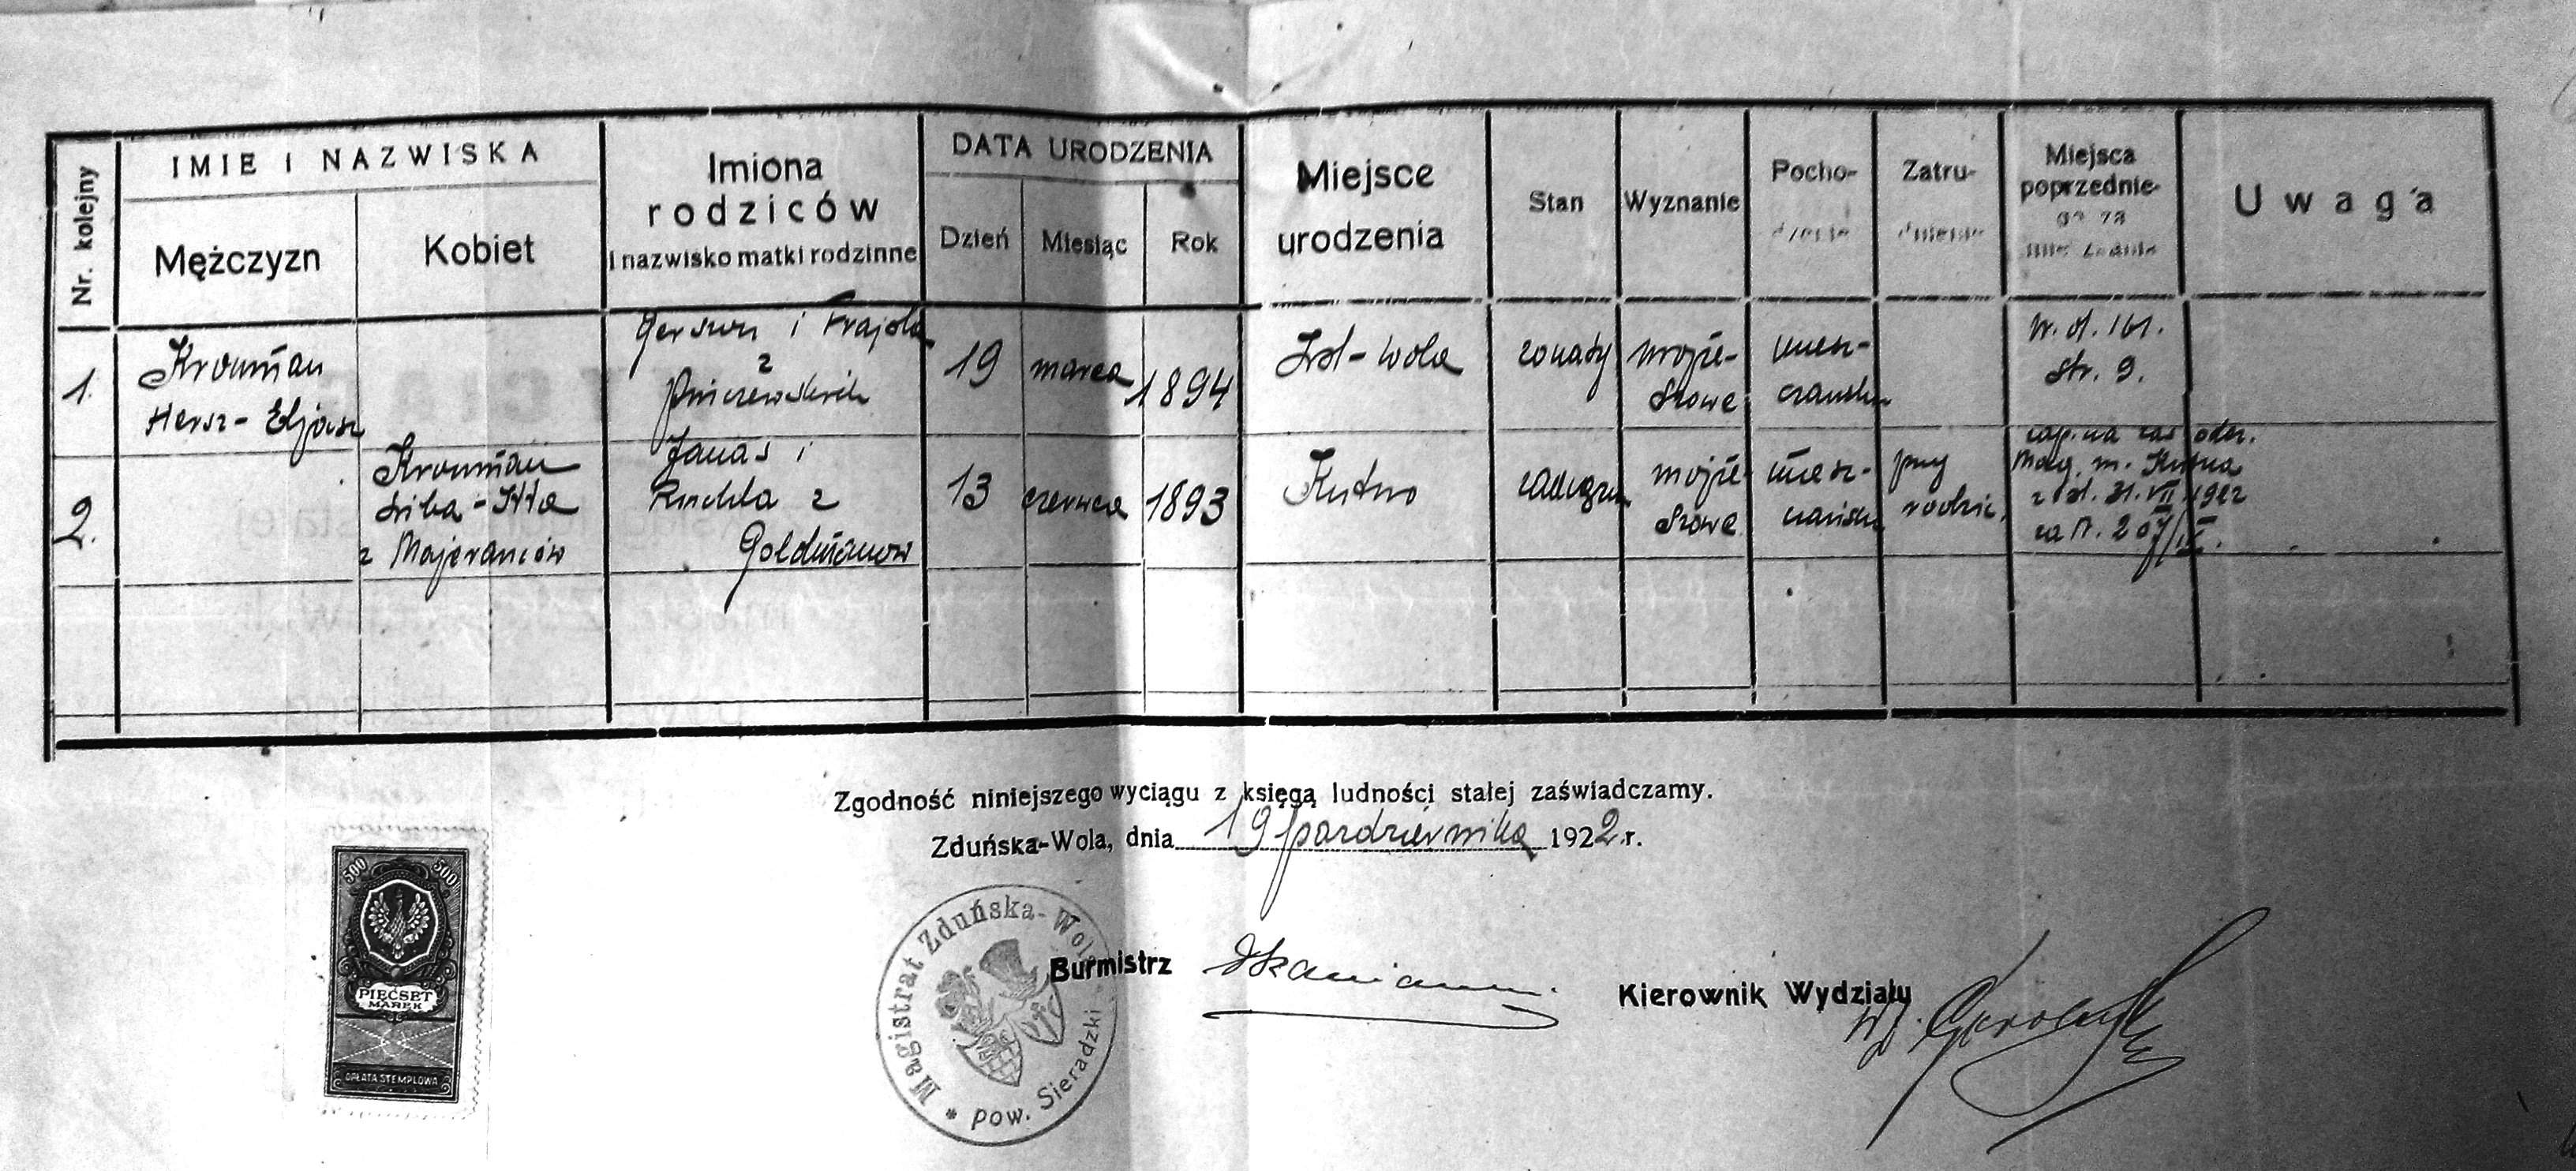 Nr. kolejny
IMIE I NAZWISKA
Mężczyzn
Kobiet
Imiona
rodziców
i nazwisko matki rodzinne
DATA URODZENIA
Dzień
Miesiąc
Rok
Miejsce
urodzenia
Stan
Wyznanie
Pocho-
Zatru-
Miejsca
poprzednie-
go za
Uwaga
1.
Kronman
Hersz-Eljasz
i Frajda
z
19
marca
1894
Zd-Wola
żonaty
mojże-
szowe
miesz-
W. d. 161.
str. 9.
2.
Kronman
Liba-Itta
z Majerančów
Janas i
Ruchla z
Goldmanów
13
czerwca
1893
Kutno
mojże-
szowe
miesz-
przy
rodzic.
zap. na zas
Mag. m. Kutna
z d. 31.VII.1922
za N. 207/IV.
Zgodność niniejszego wyciągu z księgą ludności stałej zaświadczamy.
Zduńska-Wola, dnia 19 października 1922 r.
500 500
PIĘĆSET
MAREK
OPŁATA STEMPLOWA
Magistrat Zduńska-Wola
* pow. Sieradzki
Burmistrz
Kierownik Wydziału